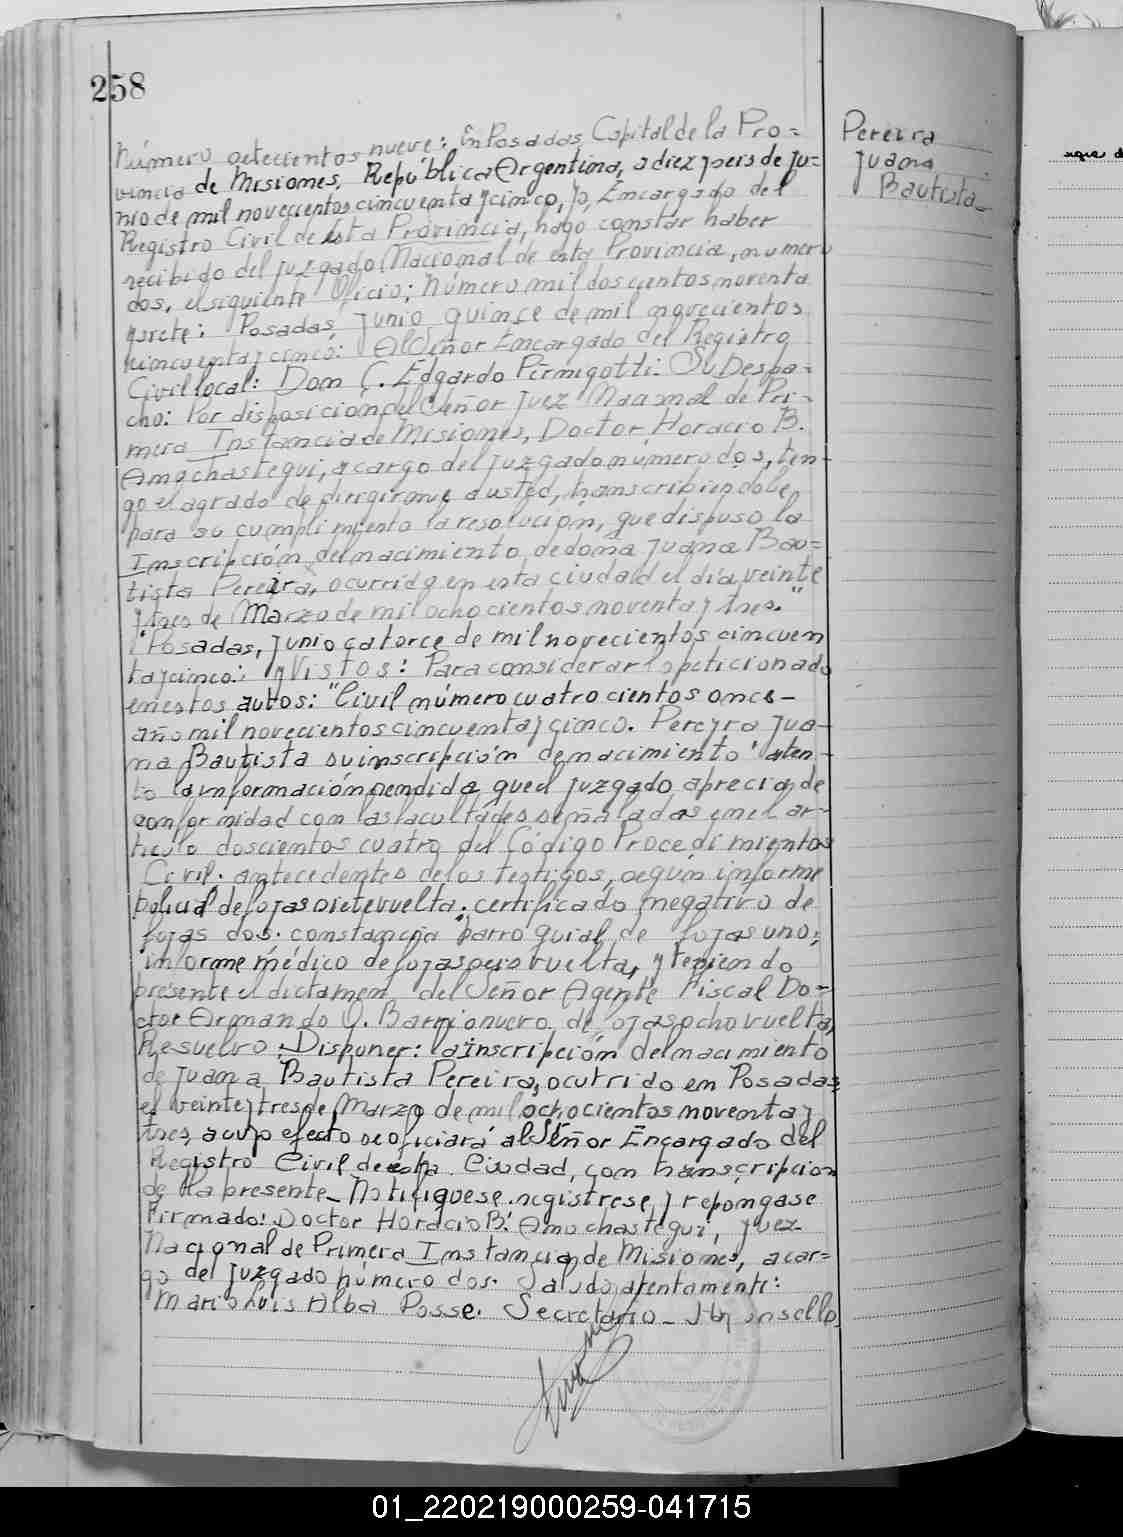 258
Pereira
Juana
Bautista_
Número setecientos nueve: En Posadas, Capital de la Pro=
vincia de Misiones, República Argentina, a diez y seis de Ju=
nio de mil novecientos cincuenta y cinco, Yo, Encargado del
Registro Civil de esta Provincia, hago constar haber
recibido del Juzgado Nacional de esta Provincia, numero
dos, el siguiente Oficio: Número mil doscientos noventa
y siete: Posadas, Junio quince de mil novecientos
cincuenta y cinco: Al Señor Encargado del Registro
Civil local: Don C. Edgardo Pirmigotti: Su Despa=
cho: Por disposicion del Señor Juez Nacional de Pri-
mera Instancia de Misiones, Doctor Horacio B.
Amochastegui, a cargo del Juzgado numero dos, ten-
go el agrado de dirigirme a usted, transcribiendole,
para su cumplimiento la resolución, que dispuso la
Inscripción del nacimiento de doña Juana Bau=
tista Pereira, ocurrido en esta ciudad el día veinte
y tres de Marzo de mil ochocientos noventa y tres."
"Posadas, Junio catorce de mil novecientos cincuen
ta y cinco.: Y Vistos: Para considerar lo peticionado
en estos autos: "Civil número cuatrocientos once-
año mil novecientos cincuenta y cinco. Pereyra Jua-
na Bautista su inscripción de nacimiento" aten-
to la información rendida que el Juzgado aprecia de
conformidad con las facultades señaladas en el ar-
tículo doscientos cuatro del Código Procedimientos
Civil. antecedentes de los testigos, según informe
policial de fojas siete vuelta; certificado negativo de
fojas dos. constancia parroquial de fojas uno;
informe médico de fojas seis vuelta, y teniendo
presente el dictamen del Señor Agente Fiscal Do=
ctor Armando O. Barrionuevo de fojas ocho vuelta,
Resuelvo: Disponer: la inscripción del nacimiento
de Juana Bautista Pereira, ocurrido en Posadas,
el veinte y tres de Marzo de mil ochocientos noventa y
tres, a cuyo efecto se oficiará al Señor Encargado del
Registro Civil de esta Ciudad, con transcripcion
de la presente_ Notifiquese. registrese y repongase
Firmado: Doctor Horacio B. Amochastegui, Juez
Nacional de Primera Instancia de Misiones, a car=
go del Juzgado número dos. Saludo atentamente:
Mario Luis Alba Posse. Secretario_ Hay un sello.
01_220219000259-041715